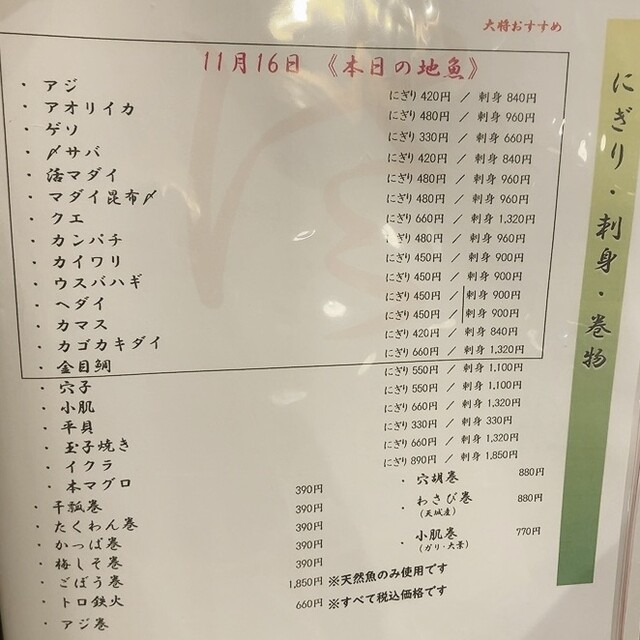 大将おすすめ
11月16日 《本日の地魚》
・アジ にぎり 420円 / 刺身 840円
・アオリイカ にぎり 480円 / 刺身 960円
・ゲソ にぎり 330円 / 刺身 660円
・〆サバ にぎり 420円 / 刺身 840円
・活マダイ にぎり 480円 / 刺身 960円
・マダイ昆布〆 にぎり 480円 / 刺身 960円
・クエ にぎり 660円 / 刺身 1,320円
・カンパチ にぎり 480円 / 刺身 960円
・カイワリ にぎり 450円 / 刺身 900円
・ウスバハギ にぎり 450円 / 刺身 900円
・ヘダイ にぎり 450円 / 刺身 900円
・カマス にぎり 450円 / 刺身 900円
・カゴカキダイ にぎり 420円 / 刺身 840円
・金目鯛 にぎり 660円 / 刺身 1,320円
・穴子 にぎり 550円 / 刺身 1,100円
・小肌 にぎり 550円 / 刺身 1,100円
・平貝 にぎり 660円 / 刺身 1,320円
・玉子焼き にぎり 330円 / 刺身 330円
・イクラ にぎり 660円 / 刺身 1,320円
・本マグロ にぎり 890円 / 刺身 1,850円
・干瓢巻 390円
・たくわん巻 390円
・かっぱ巻 390円
・梅しそ巻 390円
・ごぼう巻 390円
・トロ鉄火 1,850円
・アジ巻 660円
・穴胡巻 880円
・わさび巻 880円
(天城産)
・小肌巻 770円
(ガリ・大葉)
※天然魚のみ使用です
※すべて税込価格です
にぎり・刺身・巻物